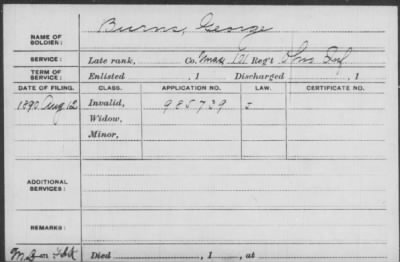 NAME OF SOLDIER: Burns, George
SERVICE: Late rank, Co. Reg't Inf
TERM OF SERVICE: Enlisted , 1 Discharged , 1
DATE OF FILING. CLASS. APPLICATION NO. LAW. CERTIFICATE NO.
1890 Aug 12 Invalid, 985739
Widow,
Minor,
ADDITIONAL SERVICES:
REMARKS:
Died , 1 , at